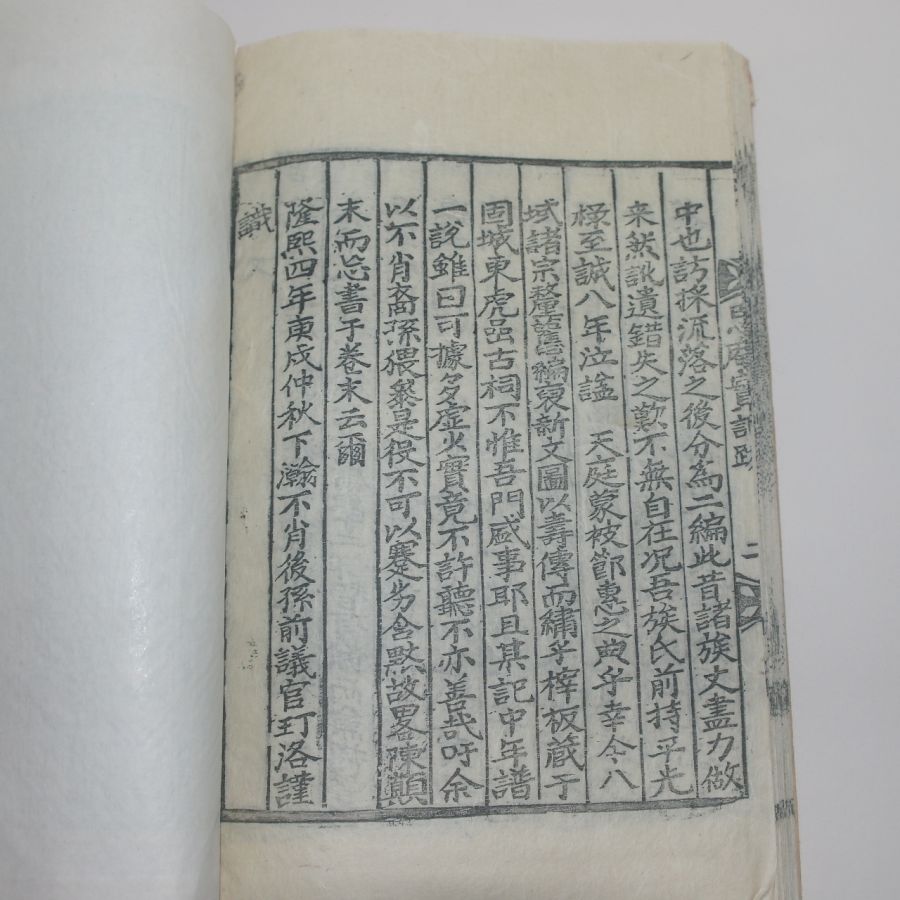 實記跋 二
中也訪採流落之後分為二編此昔諸族丈盡力做
来然訛遺錯失之歎不無自在况吾族氏前持平光
燥至誠八年泣謚 天庭蒙被節惠之典乎幸今八
域諸宗釐舊編裒新文圖以壽傳而繡乎榟板蔵于
固城東虎嵒古祠不惟吾門盛事耶且其記中年譜
一說雖曰可據多虛少實竟不許聽不亦善哉吁余
以不肖裔孫猥叅是役不可以蹇劣含黙故畧陳顚
末而忘書于卷末云爾
隆熙四年庚戌仲秋下瀚不肖後孫前議官玎洛謹
識